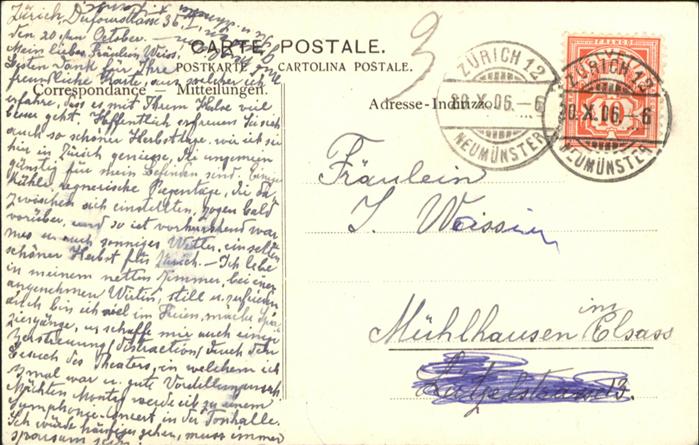 Zürich, Dufourstrasse 36,
den 20ten October.
Mein liebes Fräulein Weiss,
Besten Dank für Ihre
freundliche Karte, aus welcher ich
erfahre, dass es mit Ihrem Halse viel
besser geht. Hoffentlich erfreuen Sie sich
auch so schöner Herbsttage, wie ich sie
hier in Zürich geniesse, die ungemein
günstig für mein Befinden sind. Einige
kühle, regnerische Regentage, die da
zwischen sich einstellten, zogen bald
vorüber, und so ist vorherrschend war
mes u. auch sonniges Wetter, ein selten
schöner Herbst für Zürich. – Ich lebe
in meinem netten Zimmer, bei einer
angenehmen Wirtin, still u. zufrieden
doch bin ich viel im Freien, mache Spa
ziergänge, u. schaffe mir auch einige
Zerstreuung (distraction) durch den
Besuch des Theaters, in welchem ich
2 mal war u. gute Vorstellungen sah.
Nächsten Montag werde ich zu einem
Symphonie-Concert in der Tonhalle.
Ich würde häufiger gehen, muss immer
sparsam sein
CARTE POSTALE.
POSTKARTE. CARTOLINA POSTALE.
Correspondance – Mitteilungen.
Adresse-Indirizzo
3
ZÜRICH 12
20.X.06.–6
NEUMÜNSTER
ZÜRICH 12
20.X.06.–6
NEUMÜNSTER
FRANCO
Fräulein
I. Weiss
Mühlhausen im Elsass